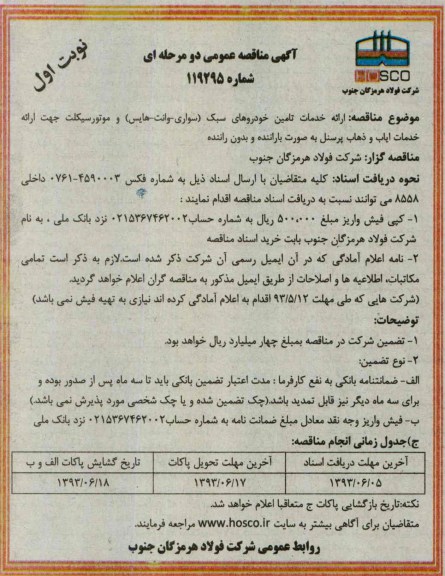 آگهی مناقصه عمومی دو مرحله ای
شماره ۱۱۹۲۹۵
نوبت اول
HOSCO
شرکت فولاد هرمزگان جنوب
موضوع مناقصه: ارائه خدمات تامین خودروهای سبک (سواری-وانت-هایس) و موتورسیکلت جهت ارائه
خدمات ایاب و ذهاب پرسنل به صورت باراننده و بدون راننده
مناقصه گزار: شرکت فولاد هرمزگان جنوب
نحوه دریافت اسناد: کلیه متقاضیان با ارسال اسناد ذیل به شماره فکس ۴۵۹۰۰۰۳-۰۷۶۱ داخلی
۸۵۵۸ می توانند نسبت به دریافت اسناد مناقصه اقدام نمایند :
۱- کپی فیش واریز مبلغ ۵۰۰,۰۰۰ ریال به شماره حساب۰۲۱۵۳۶۷۴۶۲۰۰۲ نزد بانک ملی ، به نام
شرکت فولاد هرمزگان جنوب بابت خرید اسناد مناقصه
۲- نامه اعلام آمادگی که در آن ایمیل رسمی آن شرکت ذکر شده است،لازم به ذکر است تمامی
مکاتبات، اطلاعیه ها و اصلاحات از طریق ایمیل مذکور به مناقصه گران اعلام خواهد گردید.
(شرکت هایی که طی مهلت ۹۳/۵/۱۲ اقدام به اعلام آمادگی کرده اند نیازی به تهیه فیش نمی باشد)
توضیحات:
۱- تضمین شرکت در مناقصه بمبلغ چهار میلیارد ریال خواهد بود.
۲- نوع تضمین:
الف- ضمانتنامه بانکی به نفع کارفرما : مدت اعتبار تضمین بانکی باید تا سه ماه پس از صدور بوده و
برای سه ماه دیگر نیز قابل تمدید باشد.(چک تضمین شده و یا چک شخصی مورد پذیرش نمی باشد.)
ب- فیش واریز وجه نقد معادل مبلغ ضمانت نامه به شماره حساب۰۲۱۵۳۶۷۴۶۲۰۰۲ نزد بانک ملی
ج)جدول زمانی انجام مناقصه:
آخرین مهلت دریافت اسناد آخرین مهلت تحویل پاکات تاریخ گشایش پاکات الف و ب
۱۳۹۳/۰۶/۰۵ ۱۳۹۳/۰۶/۱۷ ۱۳۹۳/۰۶/۱۸
نکته:تاریخ بازگشایی پاکات ج متعاقبا اعلام خواهم شد.
متقاضیان برای آگاهی بیشتر به سایت www.hosco.ir مراجعه فرمایند.
روابط عمومی شرکت فولاد هرمزگان جنوب